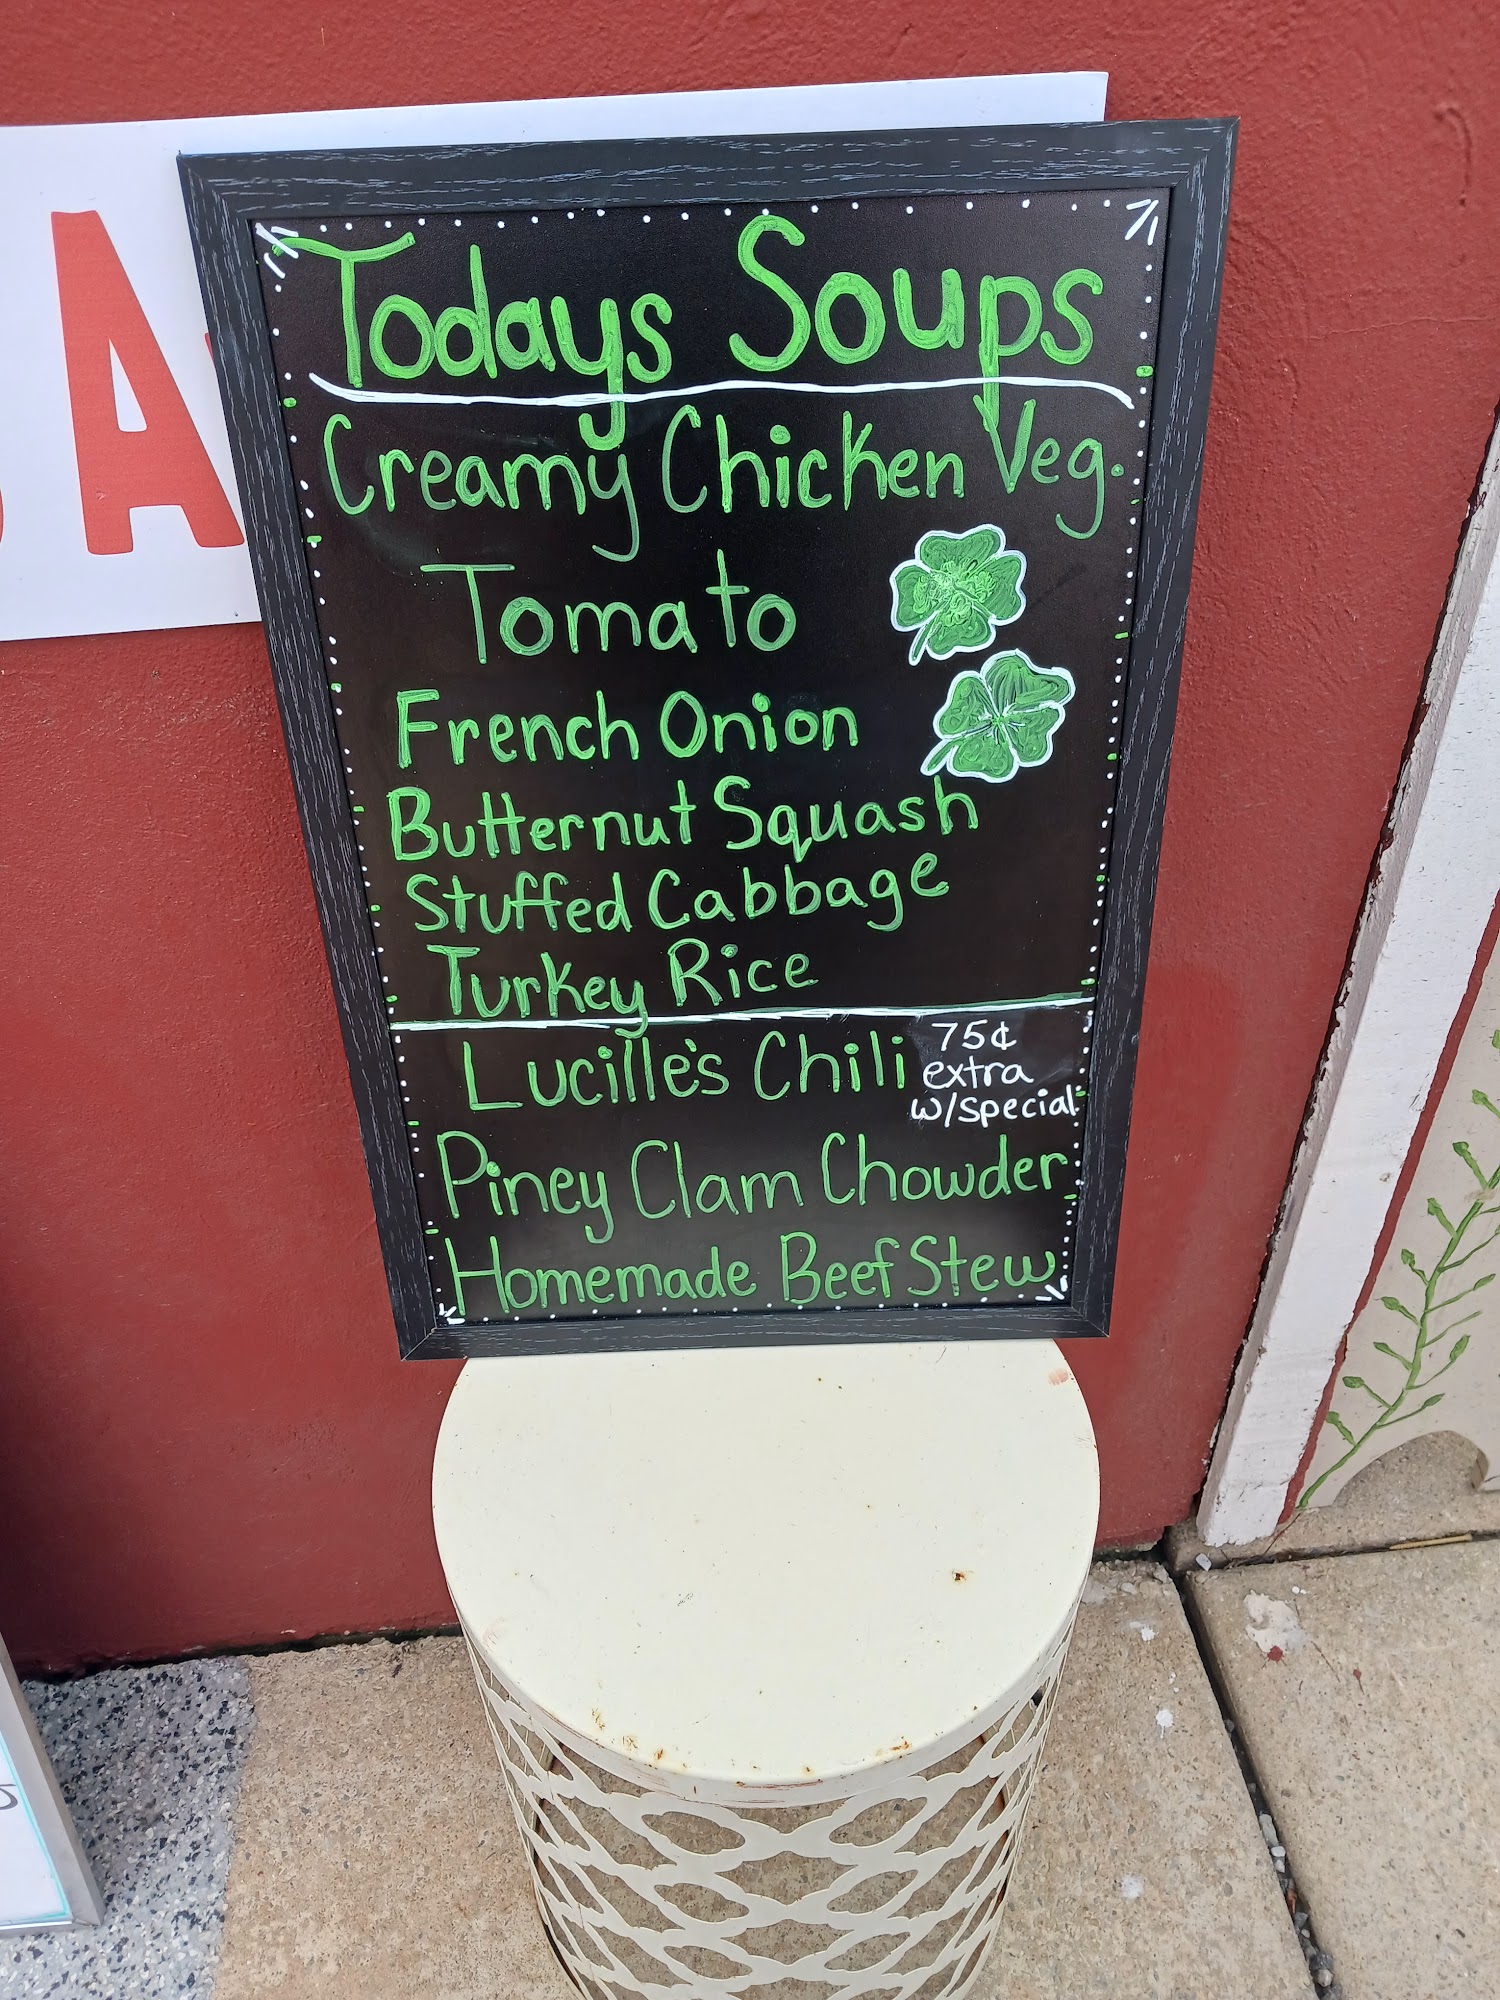 Todays Soups
Creamy Chicken Veg.
Tomato
French Onion
Butternut Squash
Stuffed Cabbage
Turkey Rice
Lucille's Chili
75¢
extra
w/special
Piney Clam Chowder
Homemade Beef Stew
A